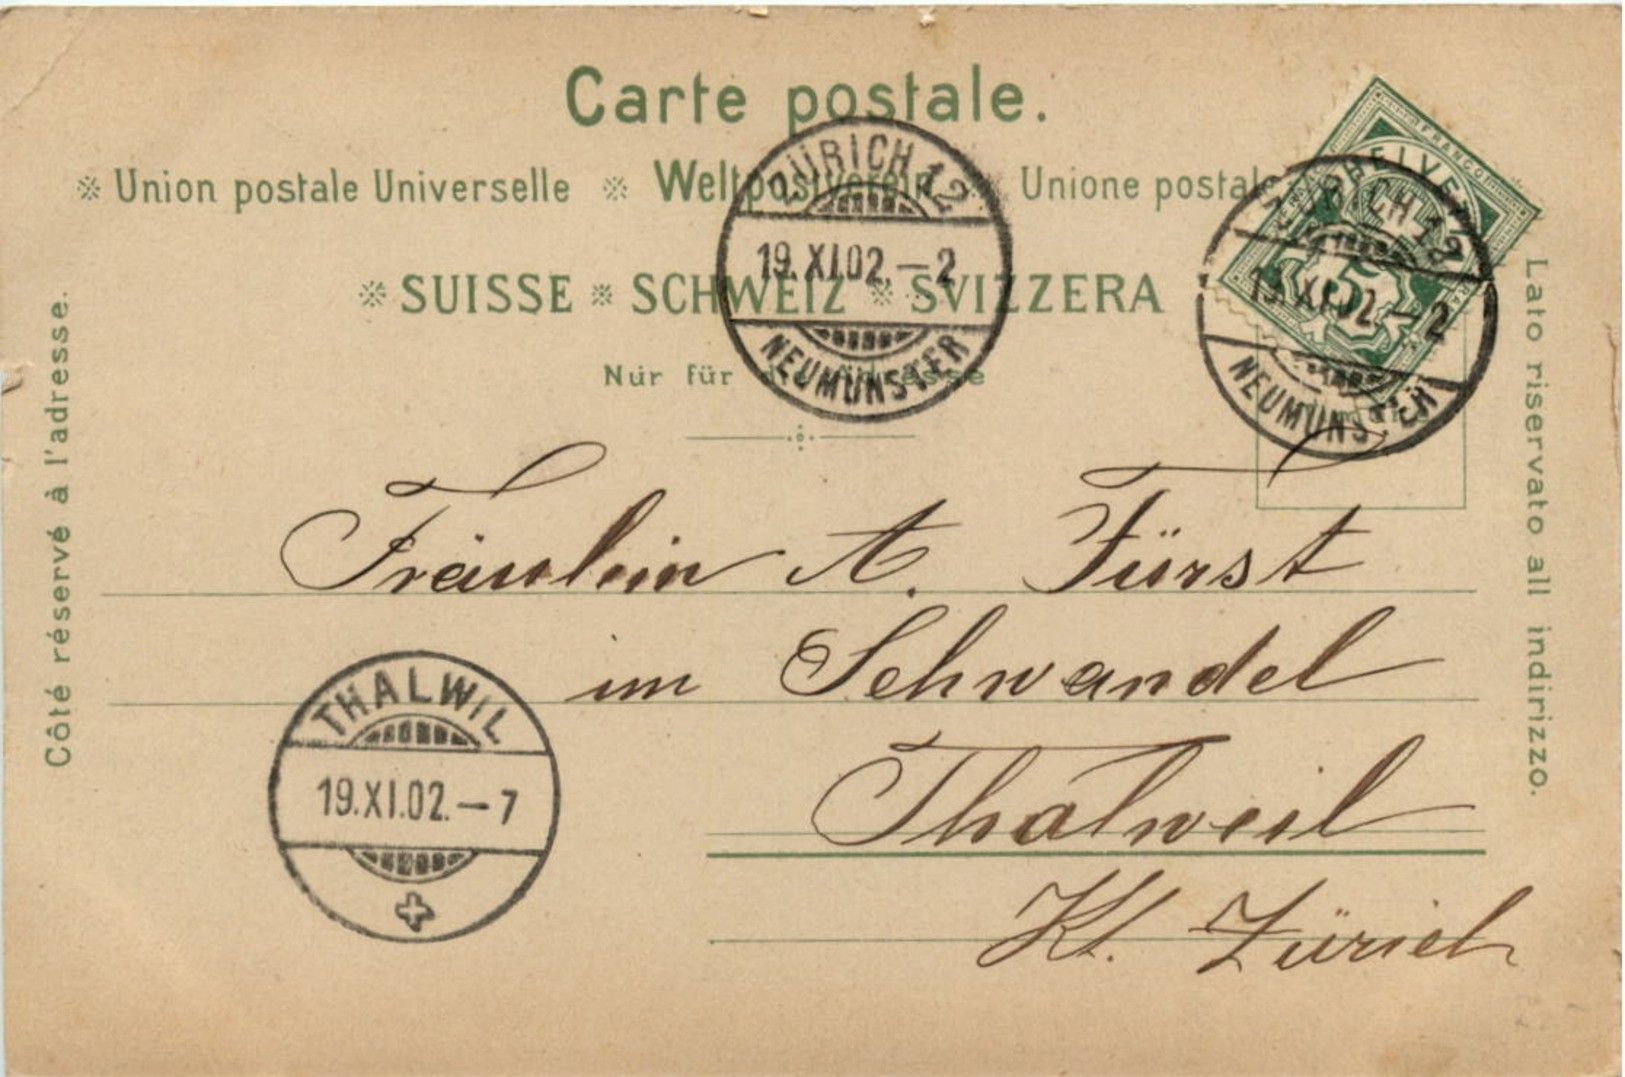 Carte postale.
※ Union postale Universelle ※ Weltpostverein ※ Unione postale
※ SUISSE ※ SCHWEIZ ※ SVIZZERA
Nur für die Adresse
Côté réservé à l'adresse.
Lato riservato all indirizzo.
ZÜRICH 12
19.XI.02.–2
NEUMÜNSTER
FRANCO
HELVETIA
5
ZÜRICH 12
19.XI.02.–2
NEUMÜNSTER
Fräulein A. Fürst
im Schwandel
Thalweil
Kt. Zürich
THALWIL
19.XI.02.–7